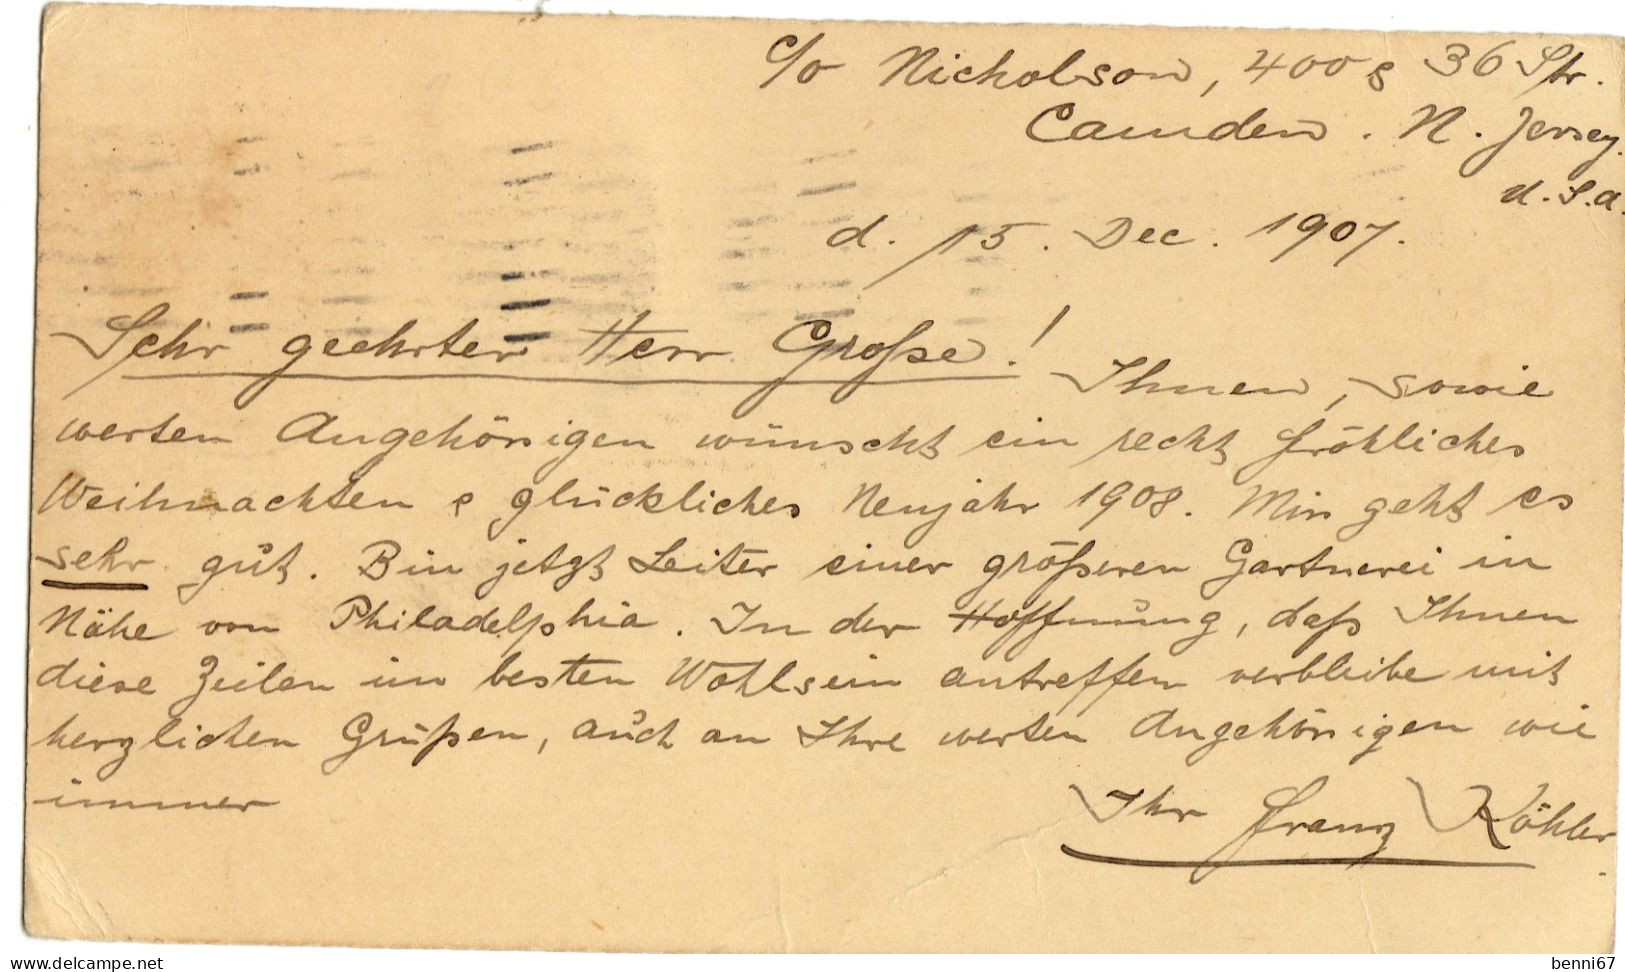 c/o Nicholson, 400 & 36 Str.
Camden. N. Jersey.
U.S.A.
d. 15. Dec. 1907.
Sehr geehrter Herr Große!
Ihnen, sowie
werten Angehörigen wünscht ein recht fröhliches
Weihnachten & glückliches Neujahr 1908. Mir geht es
sehr gut. Bin jetzt Leiter einer größeren Gartnerei in
Nähe von Philadelphia. In der Hoffnung, daß Ihnen
diese Zeilen im besten Wohlsein antreffen verbleibe mit
herzlichen Grüßen, auch an Ihre werten Angehörigen wie
immer
Ihr Franz Köhler.
delcampe.net
benni67